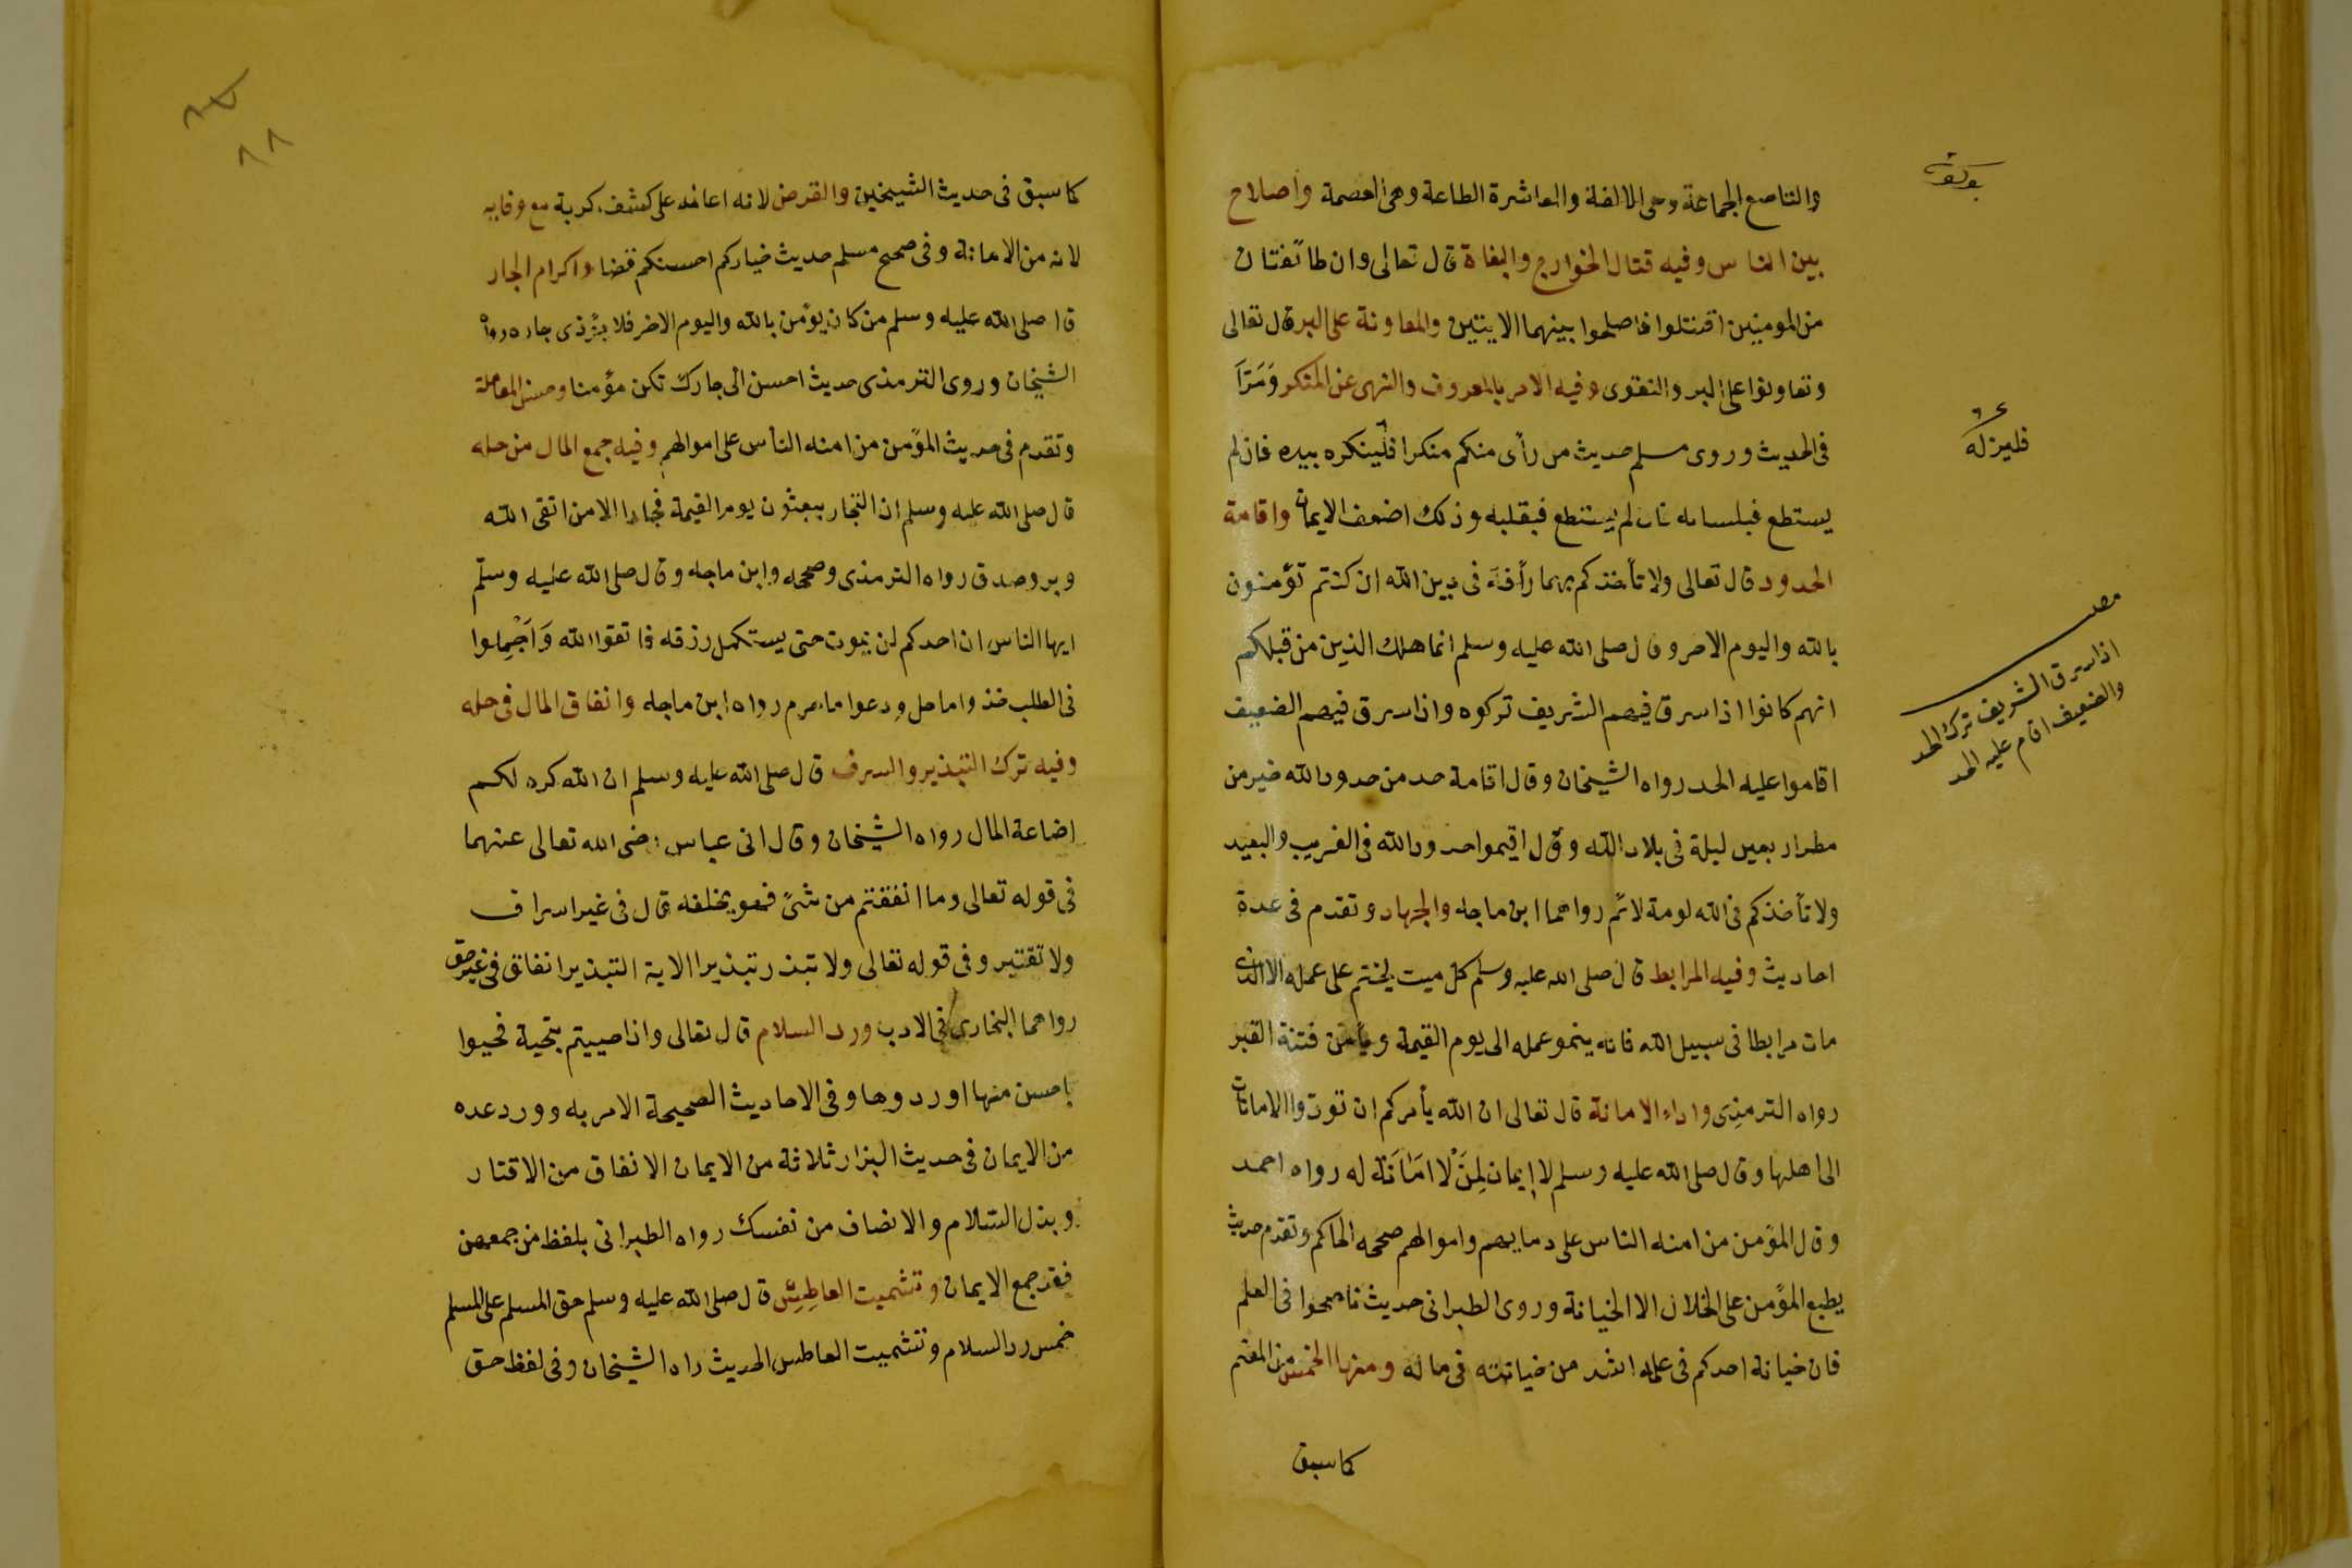 والتناصع الجماعة وهى الالفة والمعاشرة الطاعة وهى العصمة واصلاح
بين الناس وفيه قتال الخوارج والبغاة قال تعالى وان طائفتان
من المومنين اقتتلوا فاصلحوا بينهما الايتين والمعاونة على البر قال تعالى
وتعاونوا على البر والتقوى وفيه الامر بالمعروف والنهى عن المنكر وَمَرَّا
فى الحديث وروى مسلم حديث من رأى منكم منكرا فلينكره بيده فان لم
يستطع فبلسانه فان لم يستطع فبقلبه وذلك اضعف الايمان واقامة
الحدود قال تعالى ولا تأخذكم بهما رأفة فى دين الله ان كنتم تؤمنون
بالله واليوم الاخر وقال صلى الله عليه وسلم انما هلك الذين من قبلكم
انهم كانوا اذا سرق فيهم الشريف تركوه واذا سرق فيهم الضعيف
اقاموا عليه الحد رواه الشيخان وقال اقامة حد من حدود الله خير من
مطر اربعين ليلة فى بلاد الله وقال اقيموا حدود الله فى القريب والبعيد
ولا تأخذكم فى الله لومة لائم رواهما ابن ماجه والجهاد وتقدم فى عدة
احاديث وفيه المرابط قال صلى الله عليه وسلم كل ميت يختم على عمله الا الذى
مات مرابطا فى سبيل الله فانه ينمو عمله الى يوم القيمة ويأمن فتنة القبر
رواه الترمذى واداء الامانة قال تعالى ان الله يأمركم ان تودوا الامانات
الى اهلها وقال صلى الله عليه وسلم لا إيمان لِمَنْ لا امَانَة له رواه احمد
وقال المؤمن من امنه الناس على دمايهم واموالهم صححه الحاكم وتقدم حديث
يطبع المؤمن على الخلال الا الخيانة وروى الطبرانى حديث ناصحوا فى العلم
فان خيانة احدكم فى علمه اشد من خيانته فى ماله ومنها الخمس من المغنم
كما سبق
فليزله
اذا سرق الشريف ترك الحد
والضعيف اقام عليه الحد
٨٨
كما سبق فى حديث الشيخين والقرض لانه اعانه على كشف كربة مع وفايه
لانه من الامانة وفى صحيح مسلم حديث خياركم احسنكم قضا واكرام الجار
قا صلى الله عليه وسلم من كان يؤمن بالله واليوم الاخر فلا يؤذى جاره رواه
الشيخان وروى الترمذى حديث احسن الى جارك تكن مؤمنا وحسن المعاملة
وتقدم فى حديث المؤمن من امنه الناس على اموالهم وفيه جمع المال من حله
قال صلى الله عليه وسلم ان التجار يبعثون يوم القيمة فجارا الا من اتقى الله
وبر وصدق رواه الترمذى وصححه وابن ماجه وقال صلى الله عليه وسلم
ايها الناس ان احدكم لن يموت حتى يستكمل رزقه فاتقوا الله وَاَجْمِلوا
فى الطلب خذوا ما حل ودعوا ما حرم رواه ابن ماجه وانفاق المال فى حله
وفيه ترك التبذير والسرف قال صلى الله عليه وسلم ان الله كره لكم
اضاعة المال رواه الشيخان وقال انى عباس رضى الله تعالى عنهما
فى قوله تعالى وما انفقتم من شئ فهو يخلفه قال فى غير اسراف
ولا تقتير وفى قوله تعالى ولا تبذر تبذيرا الاية التبذير انفاق فى غير حق
رواهما البخارى فى الادب ورد السلام قال تعالى واذا حييتم بتحية فحيوا
باحسن منها او ردوها وفى الاحاديث الصحيحة الامر به وورد عده
من الايمان فى حديث البزار ثلاثة من الايمان الانفاق من الاقتار
وبذل السلام والانصاف من نفسك رواه الطبرانى بلفظ من جمعهن
فقد جمع الايمان وتشميت العاطِس قال صلى الله عليه وسلم حق المسلم على المسلم
خمس رد السلام وتشميت العاطس الحديث راه الشيخان وفى لفظ حق